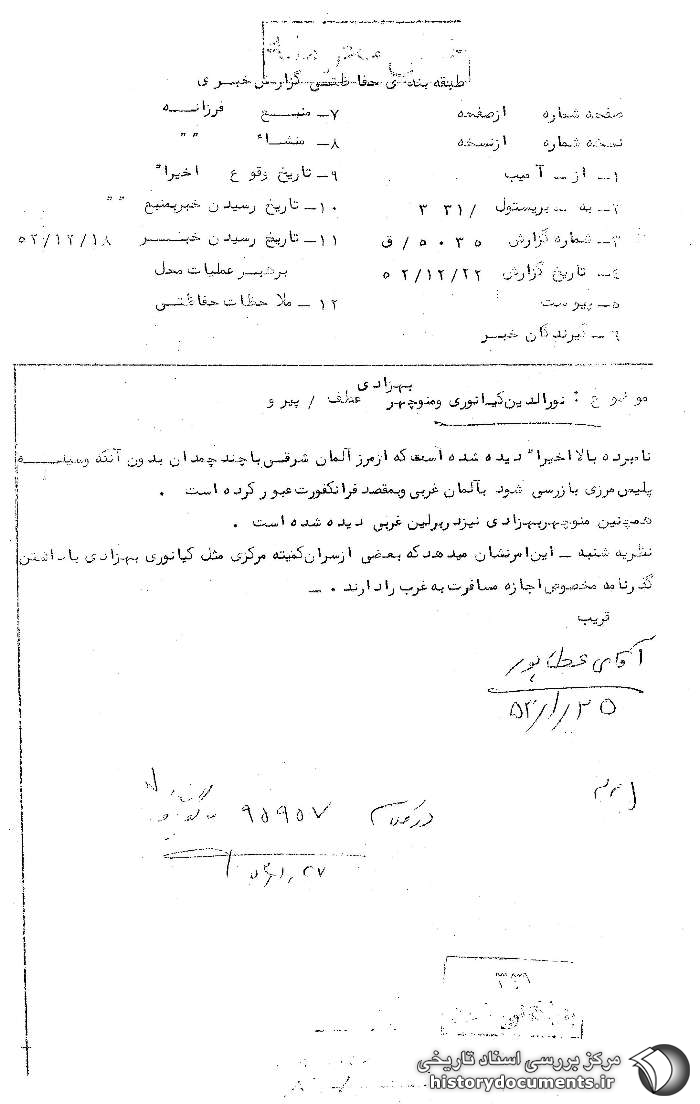 طبقه بندی حفاظتی گزارش خبری
صفحه شماره از صفحه
نسخه شماره از نسخه
۱ـ از ـ آمیب
۲ـ به ـ بریستول / ۳۳۱
۳ـ شماره گزارش ۵۰۳۵/ق
۴ـ تاریخ گزارش ۵۲/۱۲/۲۲
۵ـ پیوست
۶ـ گیرندگان خبر
۷ـ منبع فرزانه
۸ـ منشاء ״״
۹ـ تاریخ وقوع اخیراً
۱۰ـ تاریخ رسیدن خبر بمنبع ״״
۱۱ـ تاریخ رسیدن خبر ۵۲/۱۲/۱۸
برهبر عملیات محل
۱۲ـ ملاحظات حفاظتی
موضوع : نورالدین کیانوری ومنوچهر بهزادی عطف / پیرو
نامبرده بالا اخیراً دیده شده است که از مرز آلمان شرقی با چند چمدان بدون آنکه وسیله
پلیس مرزی بازرسی شود بآلمان غربی وبمقصد فرانکفورت عبور کرده است .
همچنین منوچهر بهزادی نیز در برلین غربی دیده شده است .
نظریه شنبه ـ این امر نشان میدهد که بعضی از سران کمیته مرکزی مثل کیانوری بهزادی با داشتن
گذرنامه مخصوص اجازه مسافرت به غرب را دارند . ـ
قریب
آقای عطاپور
در کلاسه ۹۵۹۵۷
۳۳۶
مرکز بررسی اسناد تاریخی
historydocuments.ir